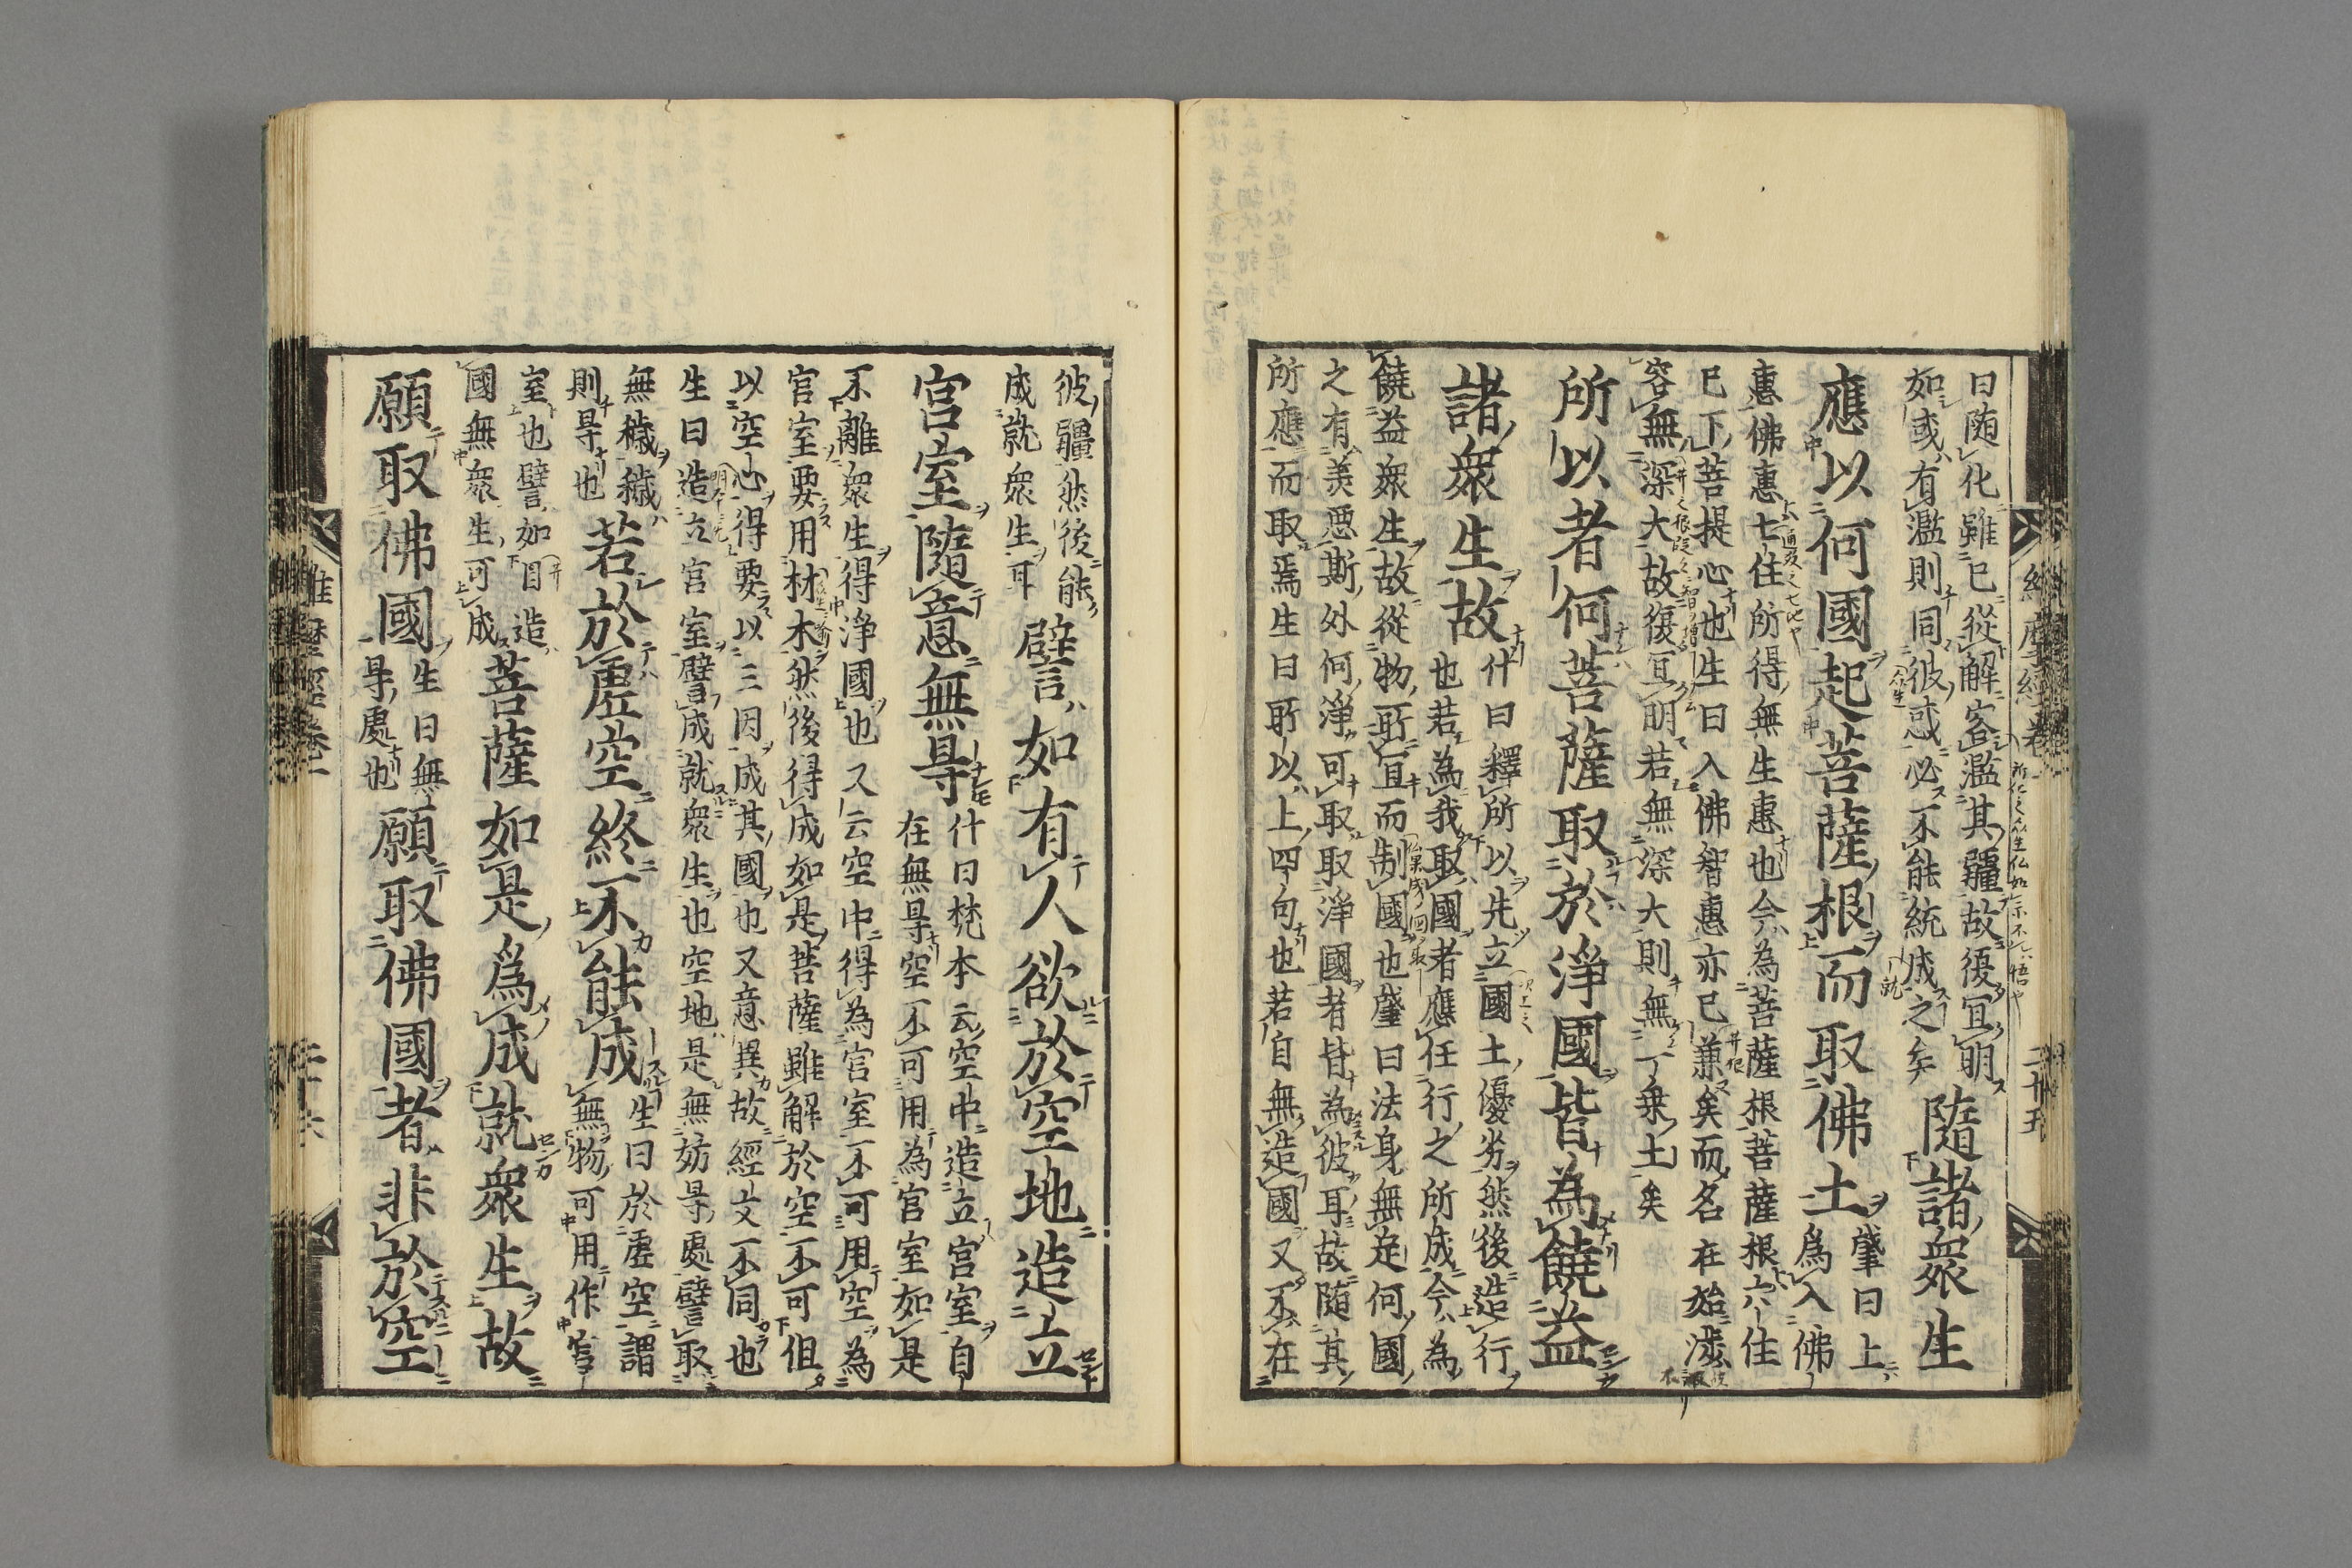 曰隨化雖已從解容濫其疆故復冝明
如或有濫則同彼惑必不能統成之矣
隨諸衆生
應以何國起菩薩根而取佛土
肇曰上
爲入佛
惠佛惠七住所得無生惠也今為菩薩根菩薩根六住
已下菩提心也生曰入佛智惠亦已兼矣而名在始涉
容無深大故復冝明若無深大則無一乗土矣
所以者何菩薩取於淨國皆為饒益
諸衆生故
什曰釋所以先立國土優劣然後造行
也若為我取國者應任行之所成今為
饒益衆生故從物所冝而制國也肇曰法身無定何國
之有美惡斯外何淨可取取淨國者皆為彼耳故隨其
所應而取焉生曰所以上四句也若自無造國又不在
彼疆然後能
成就衆生耳
譬如有人欲於空地造立
宮室隨意無㝵
什曰梵本云空中造立宮室自
在無㝵空不可用為官室如是
不離衆生得淨國也又云空中得為官室不可用空為
官室要用材木然後得成如是菩薩雖解於空不可但
以空心得要以三因成其國也又意異故經文不同也
生曰造立宮室譬成就衆生也空地是無妨㝵處譬取
無穢穢
則㝵也
若於虛空終不能成
生曰於虛空謂
無物可用作宮
室也譬如自造
國無衆生可成
菩薩如是爲成就衆生故
願取佛國
生曰無
㝵處也
願取佛國者非於空
維摩經卷一
二十六